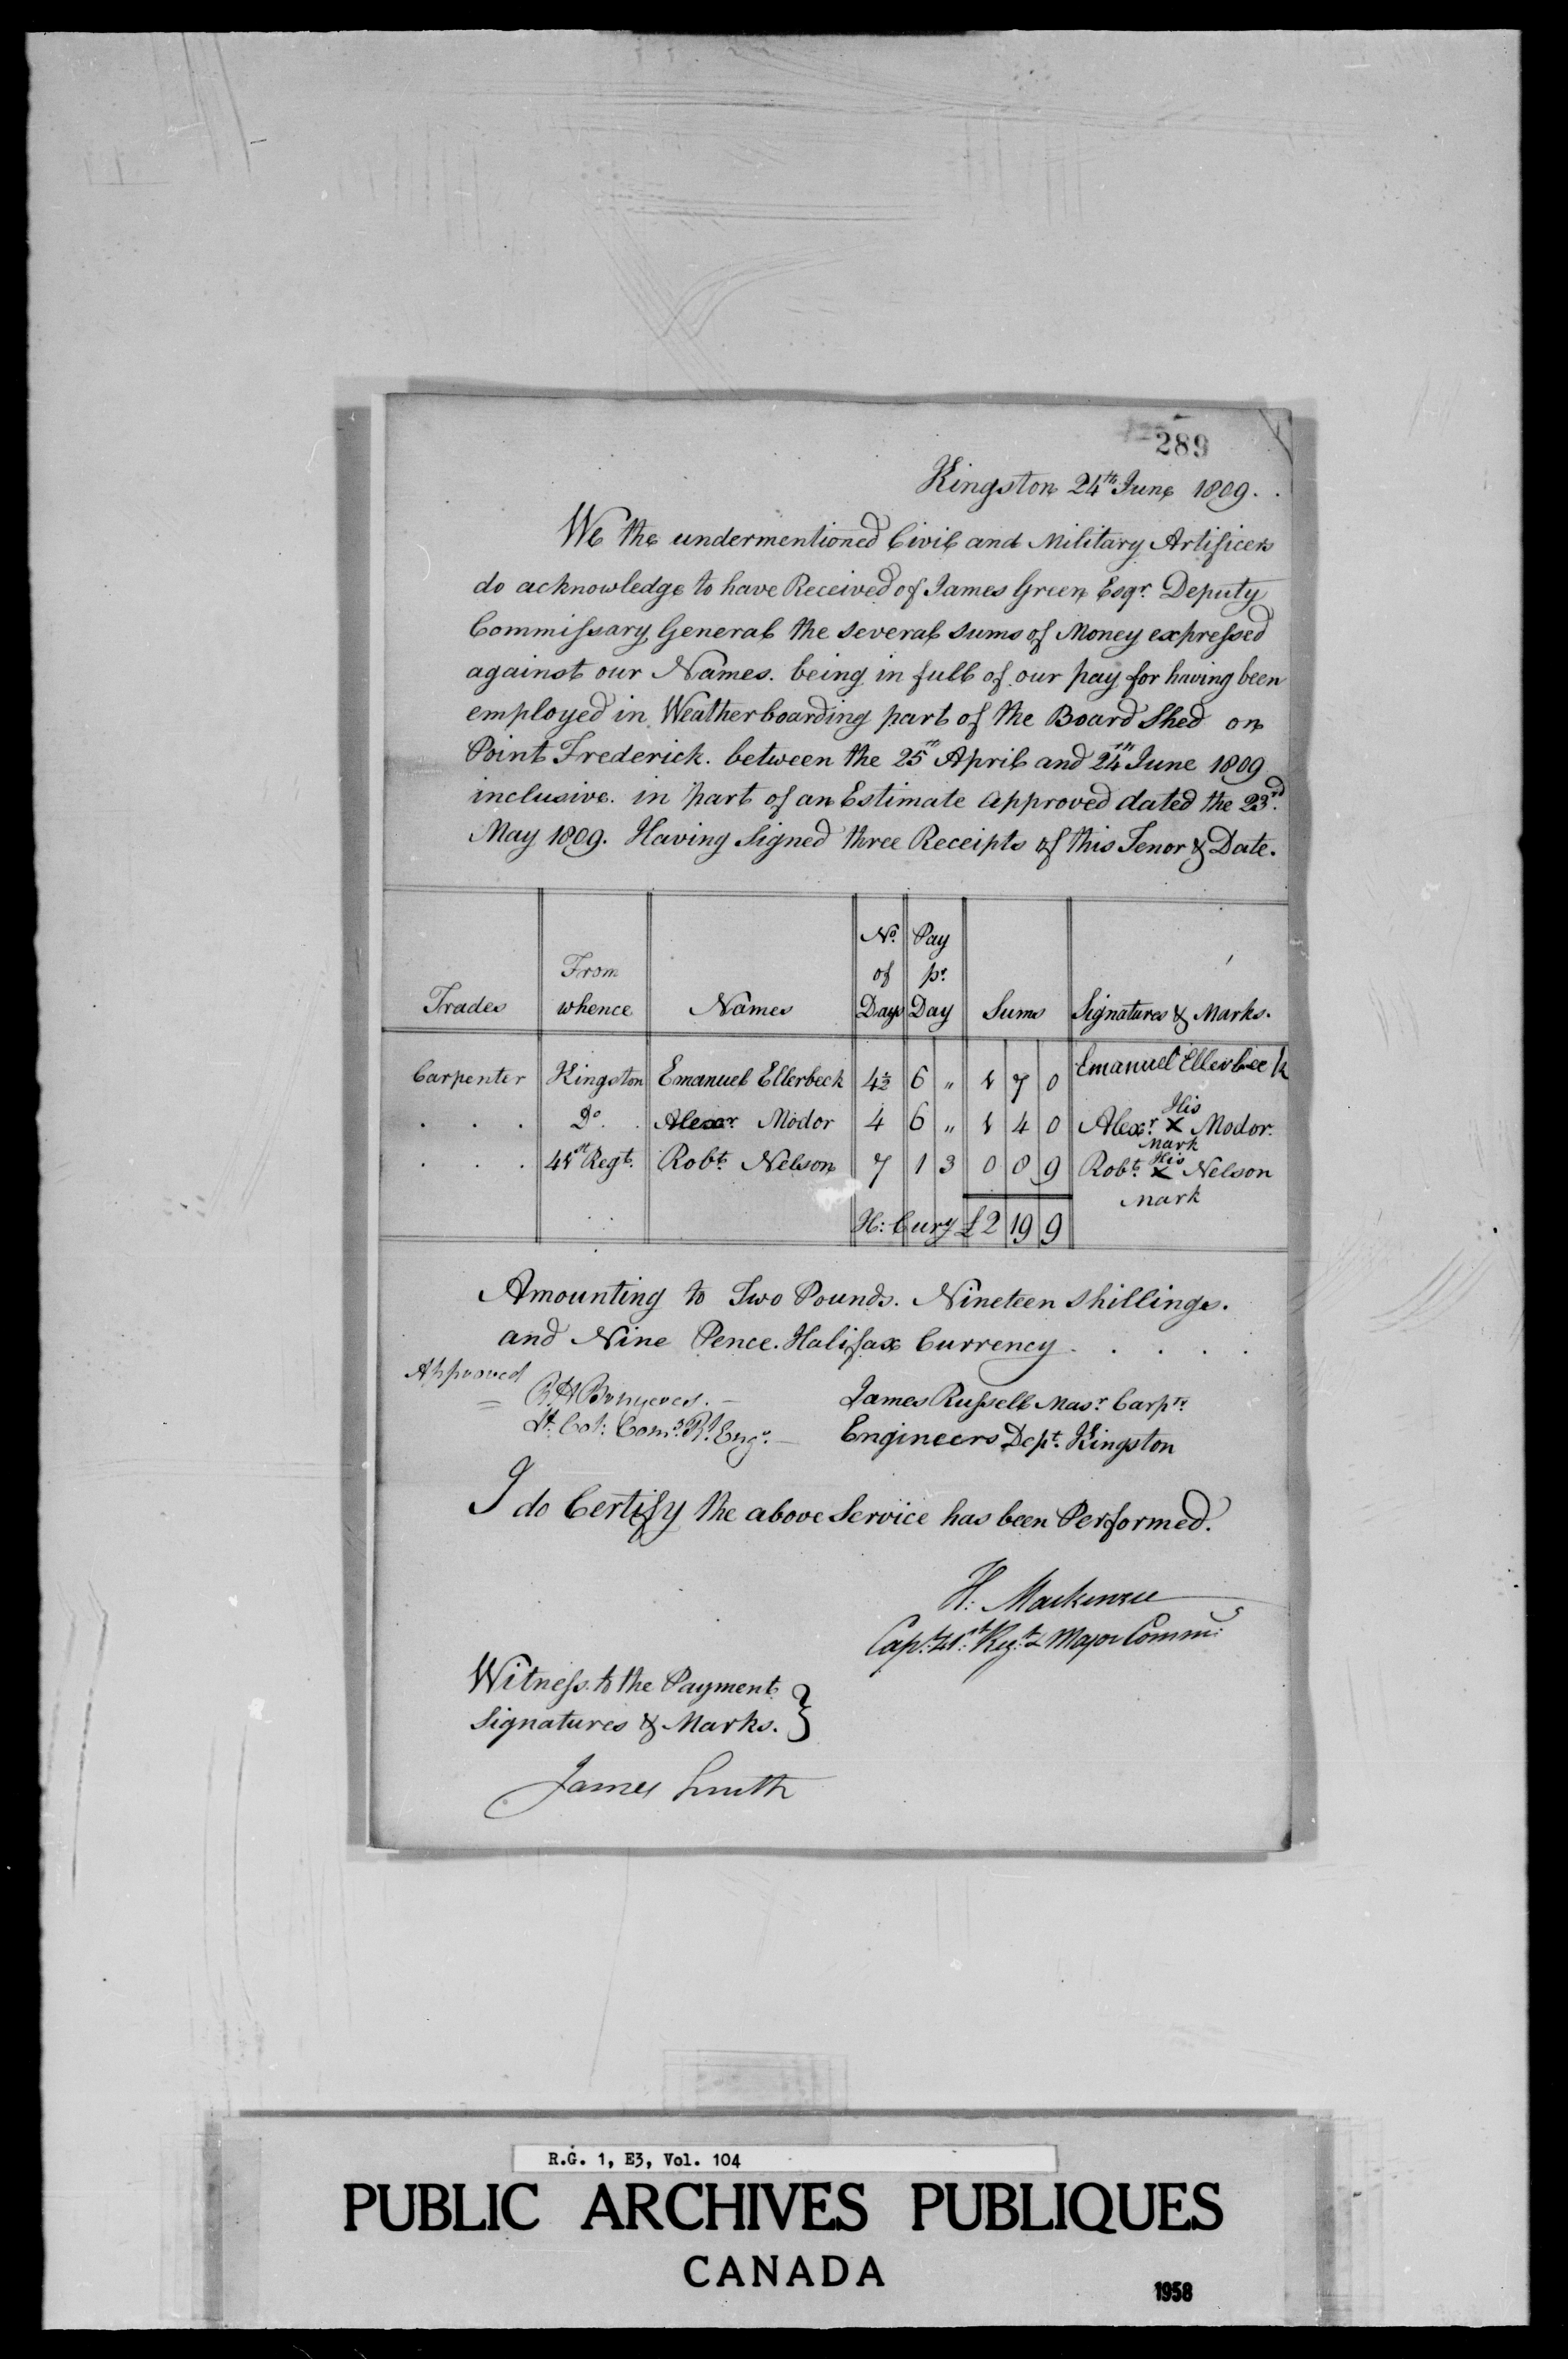 289
Kingston 24th June 1809.
We the undermentioned Civil and Military Artificers
do acknowledge to have Received of James Green Esqr. Deputy
Commissary General the several sums of Money expressed
against our Names. being in full of our pay for having been
employed in Weatherboarding part of the Board Shed on
Point Frederick. between the 25th April and 24th June 1809
inclusive. in part of an Estimate approved dated the 23rd.
May 1809. Having Signed three Receipts of this Tenor & Date.
Trades | From whence | Names | No. of Days | Pay pr. Day | Sums | Signatures & Marks.
Carpenter | Kingston | Emanuel Ellerbeck | 4½ | 6 " | 1 7 0 | Emanuel Ellerbeck
. . . | Do. | Alexr. Modor | 4 | 6 " | 1 4 0 | Alexr. His X Mark Modor.
. . . | 41st Regt. | Robt. Nelson | 7 | 1 3 | 0 8 9 | Robt. His X Mark Nelson
H: Cury £2 19 9
Amounting to Two Pounds. Nineteen Shillings.
and Nine Pence. Halifax Currency . . . .
Approved
R H Bruyeres.
Lt. Col: Comg. Rl. Engrs.
James Russell Masr. Carpr.
Engineers Dept. Kingston
I do Certify the above Service has been Performed.
H: Mackenzie
Capt. 41st Regt. & Major Commg:
Witness to the Payment
Signatures & Marks. }
James Smith
R.G. 1, E3, Vol. 104
PUBLIC ARCHIVES PUBLIQUES
CANADA
1958